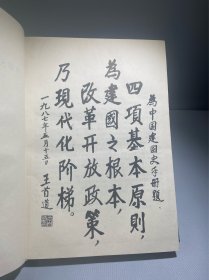 為中国建国史手册題
四項基本原則
為建國之根本，
改革开放政策，
乃現代化阶梯。
一九八七年五月十五日 王首道